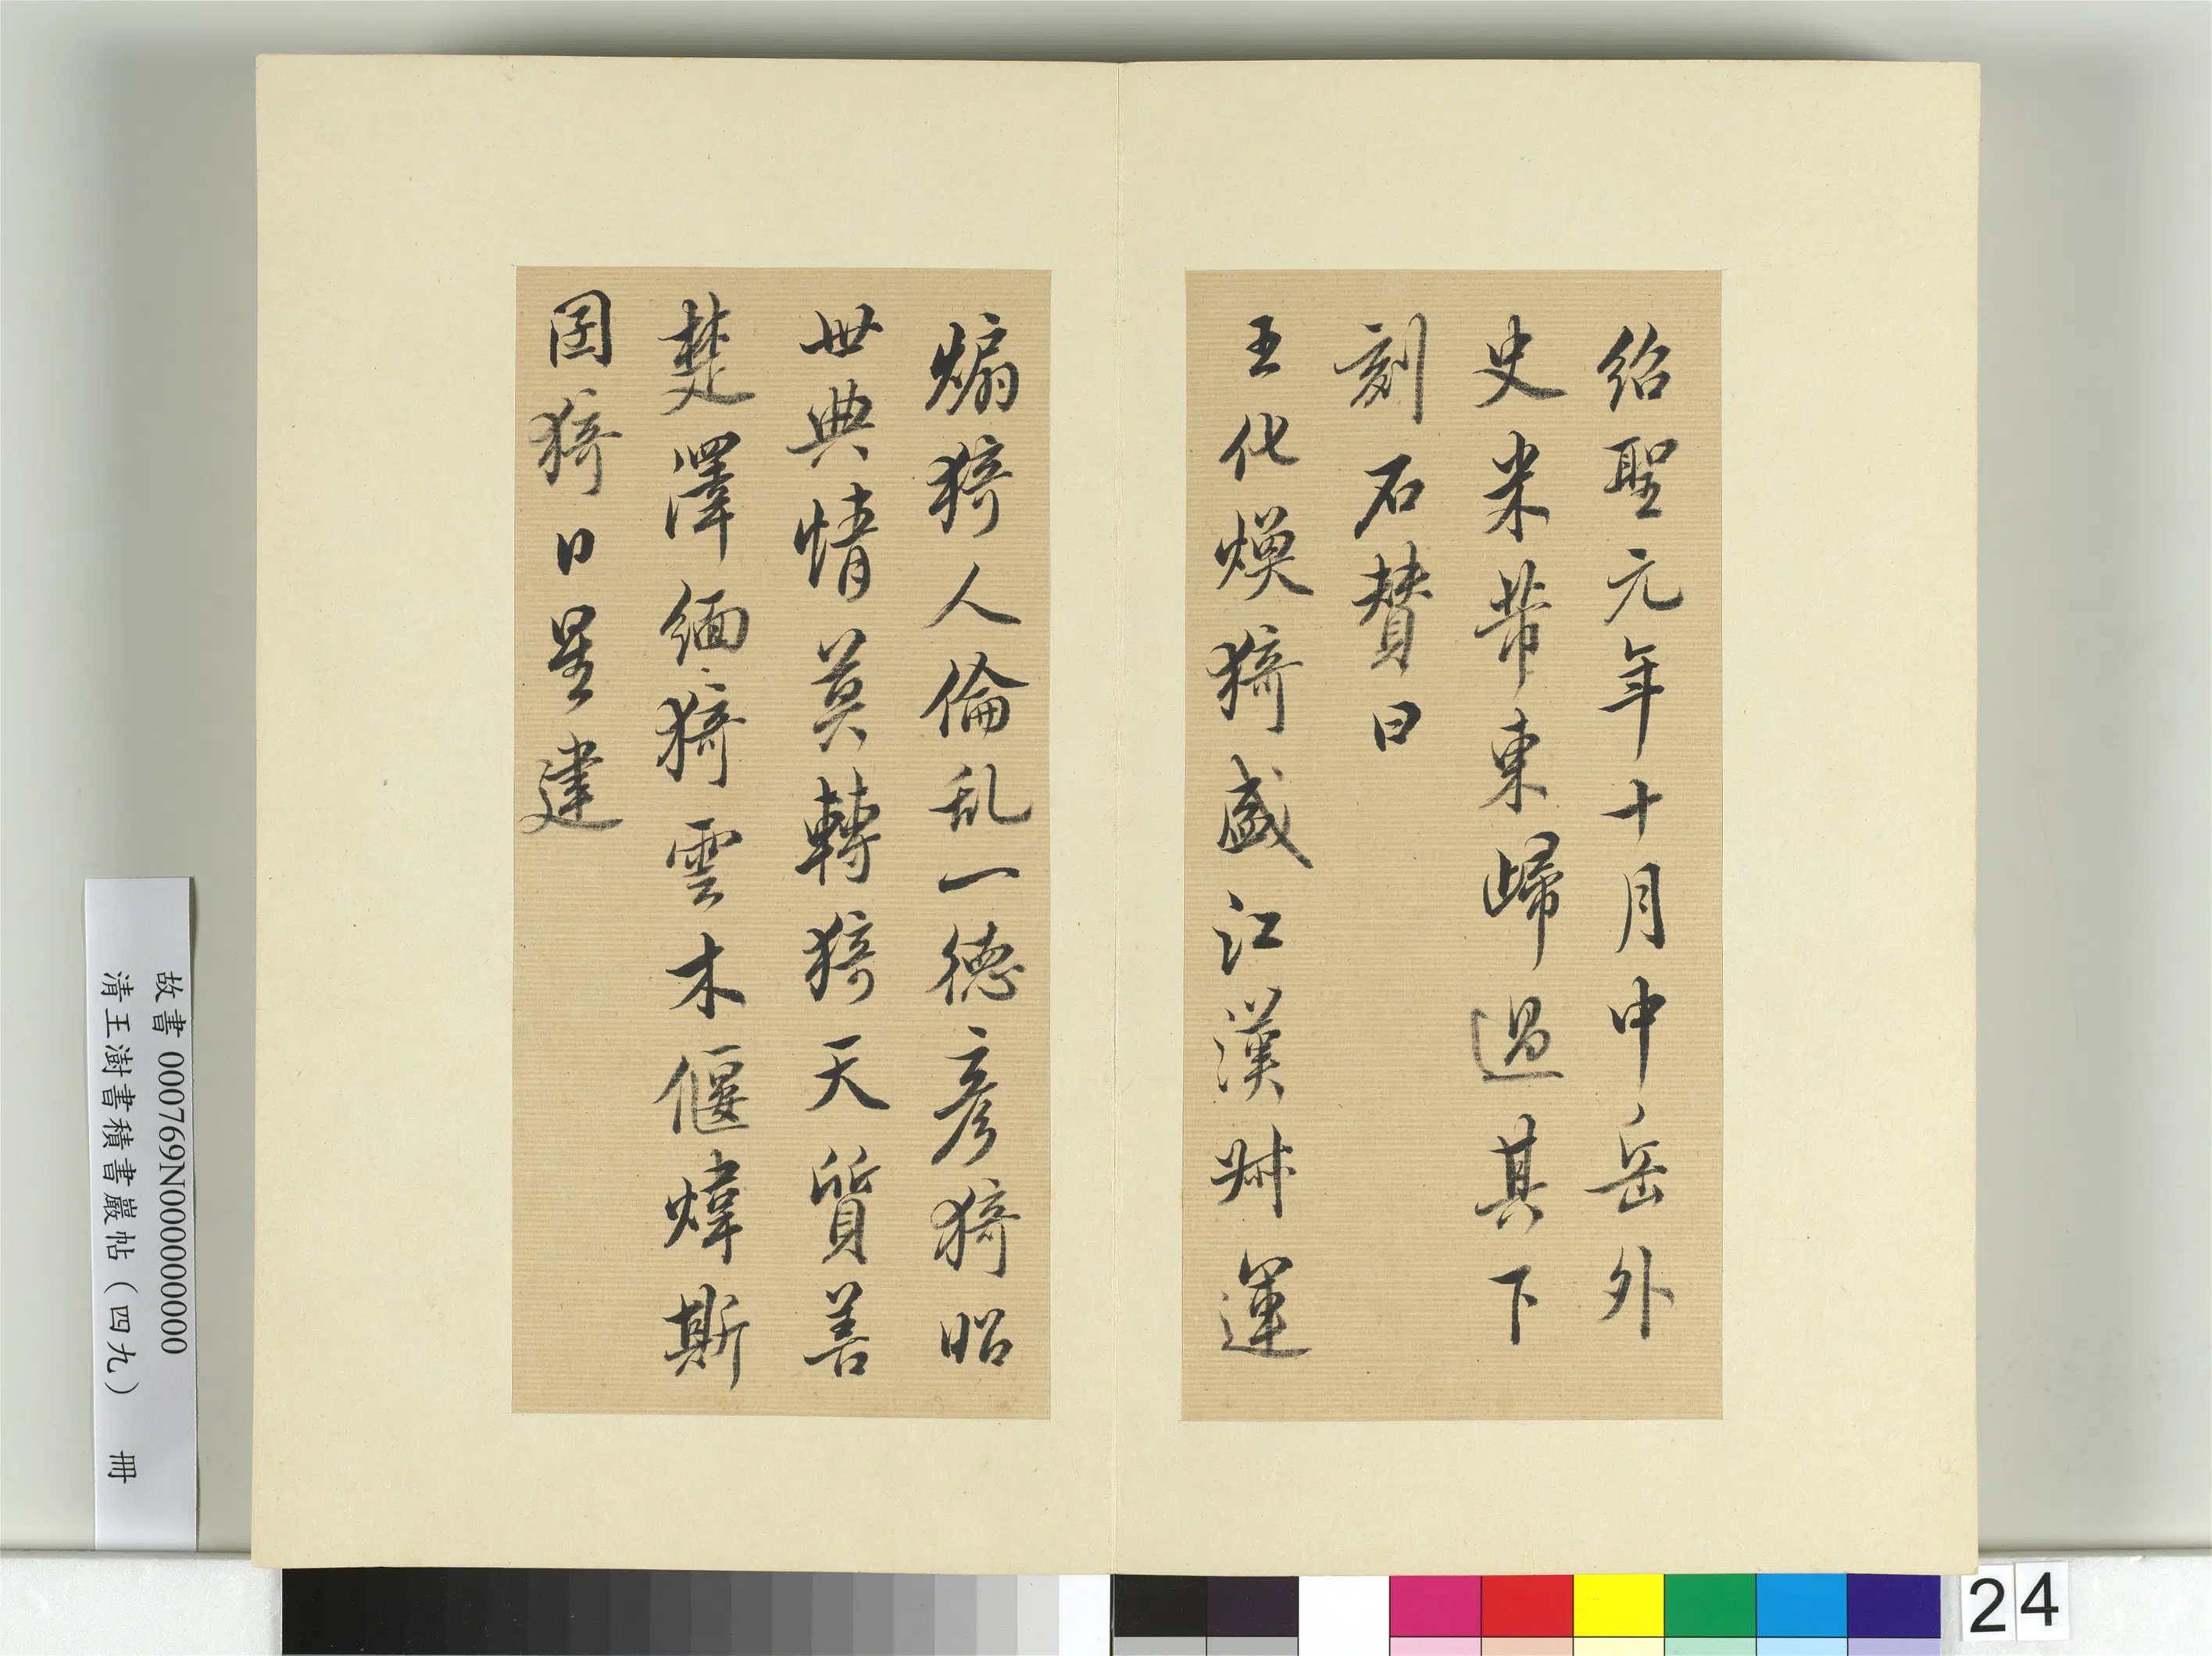 紹聖元年十月中岳外
史米芾東歸過其下
刻石賛曰
王化煥猗盛江漢猗運
煽猗人倫乱一德彥猗昭
世典情莫轉猗天質善
楚澤緬猗雲木偃煒斯
圀猗日星建
故書 000769N000000000
清王澍書積書巖帖（四九） 冊
24